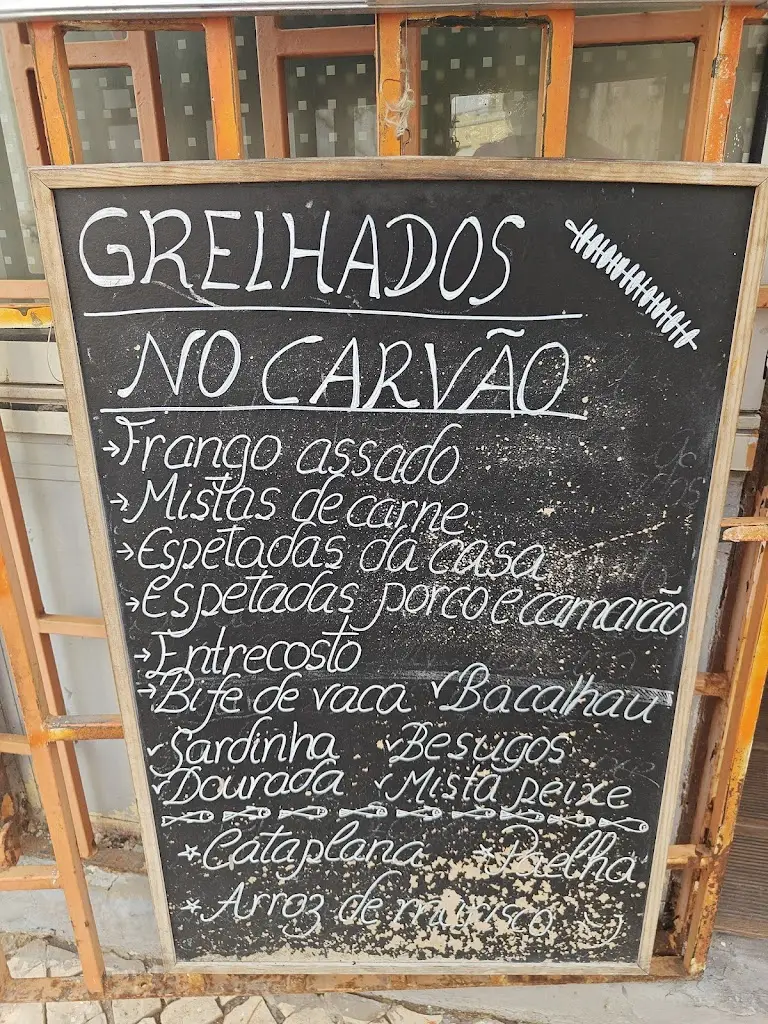 GRELHADOS
NO CARVÃO
→Frango assado
→Mistas de carne
→Espetadas da casa
→Espetadas porco e camarão
→Entrecosto
→Bife de vaca ✓Bacalhau
✓Sardinha ✓Besugos
✓Dourada ✓Mista peixe
*Cataplana *Paelha
*Arroz de marisco